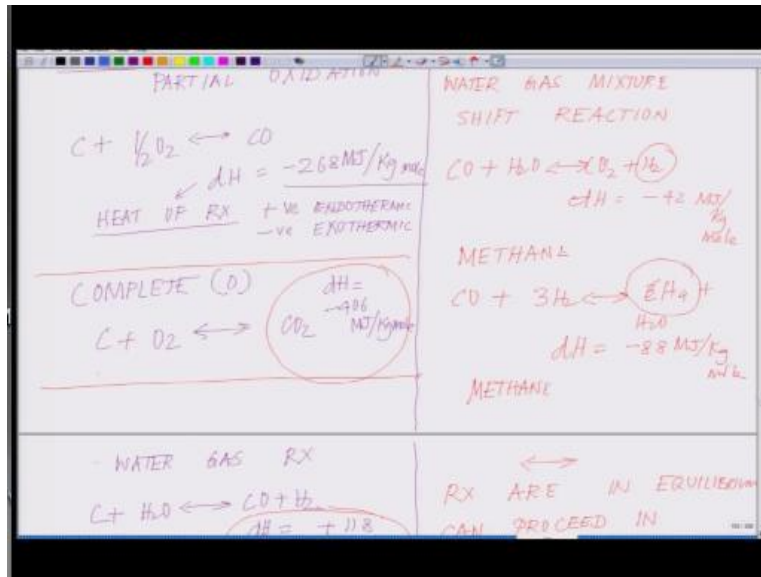 PARTIAL OXIDATION
C + 1/2 O2 ⟷ CO
dH = -268 MJ/Kg mole
HEAT OF RX +ve ENDOTHERMIC
-ve EXOTHERMIC
COMPLETE (O)
dH =
-406
C + O2 ⟷ CO2 MJ/Kgmole
WATER GAS RX
C + H2O ⟷ CO + H2
dH = +118
WATER GAS MIXTURE
SHIFT REACTION
CO + H2O ⟷ CO2 + H2
dH = -42 MJ/
Kg
Mole
METHANE
CO + 3H2 ⟷ CH4 +
H2O
dH = -88 MJ/Kg
mole
METHANE
⟷
RX ARE IN EQUILIBRIUM
CAN PROCEED IN